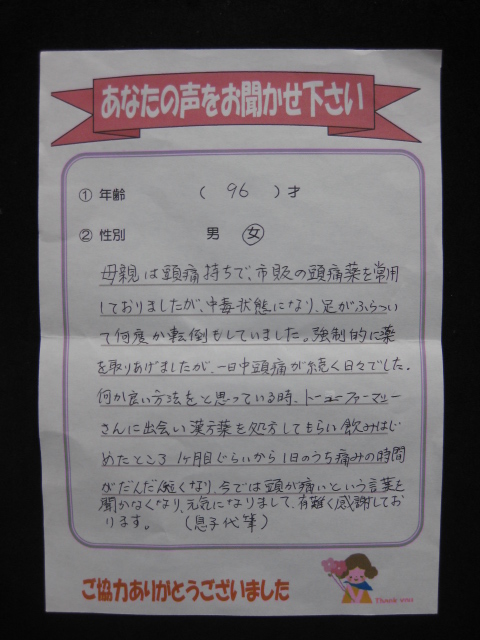 あなたの声をお聞かせ下さい
① 年齢 ( 96 ) 才
② 性別 男 女
母親は頭痛持ちで、市販の頭痛薬を常用
しておりましたが、中毒状態になり、足がふらつい
て何度か転倒もしていました。強制的に薬
を取りあげましたが、一日中頭痛が続く日々でした。
何か良い方法をと思っている時、トーユーファーマシー
さんに出会い漢方薬を処方してもらい飲みはじ
めたところ1ヶ月目ぐらいから1日のうち痛みの時間
がだんだん短くなり、今では頭が痛いという言葉を
聞かなくなり、元気になりまして、有難く感謝してお
ります。 (息子代筆)
ご協力ありがとうございました
Thank you